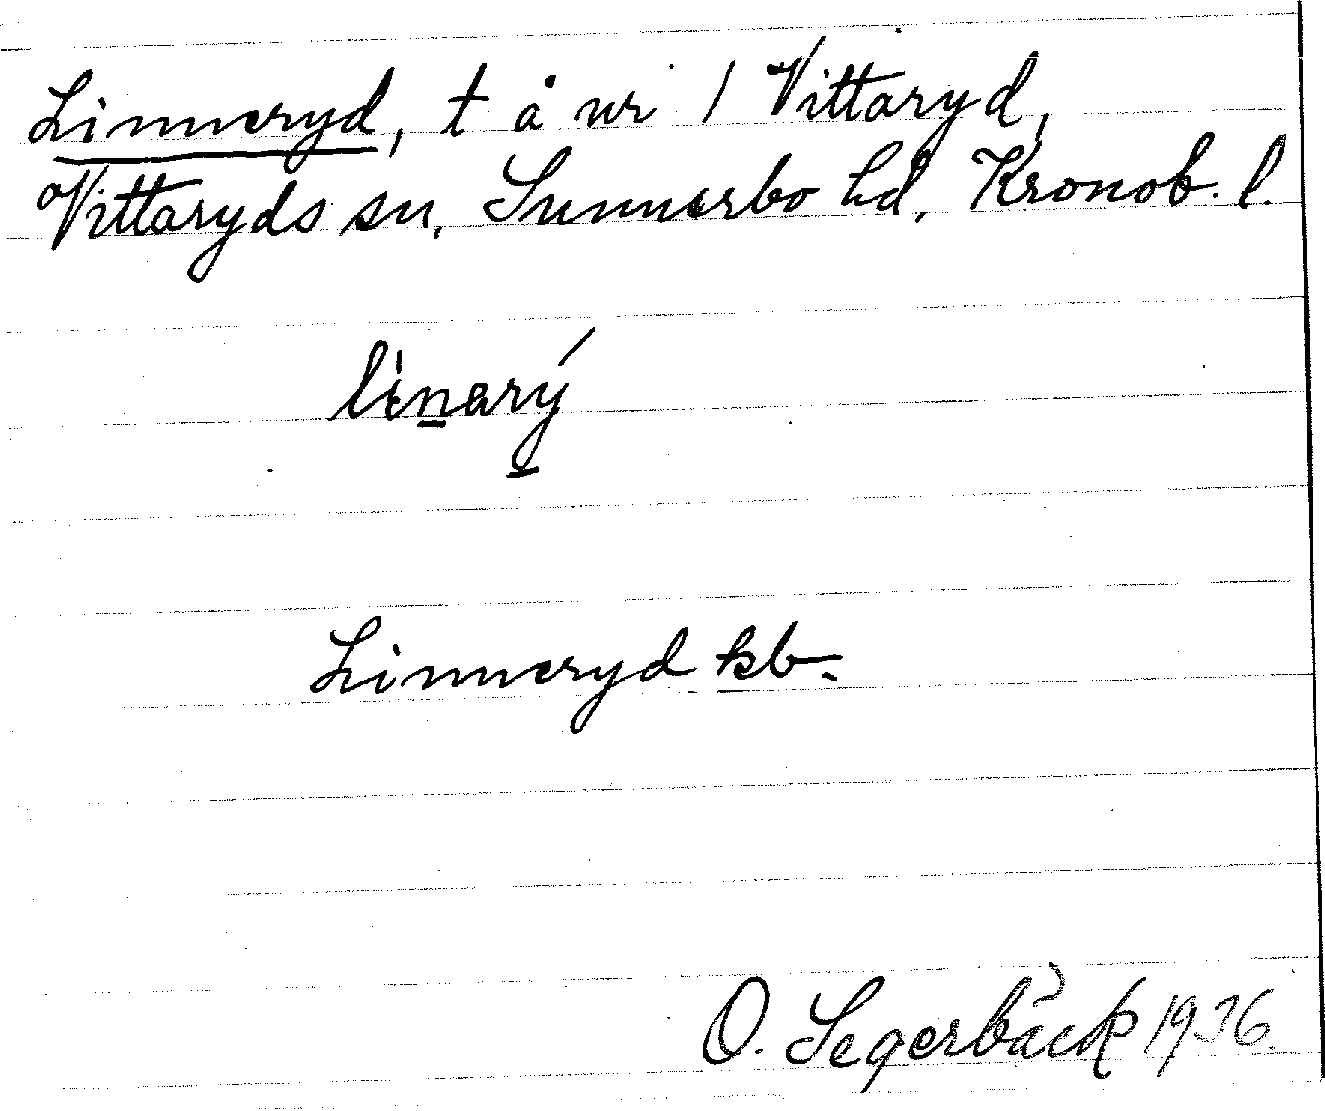 Linneryd, t å nr 1 Vittaryd,
Vittaryds sn, Sunnerbo hd, Kronob. l.
lìnarý
Linneryd kb.
O. Segerbäck 1936.